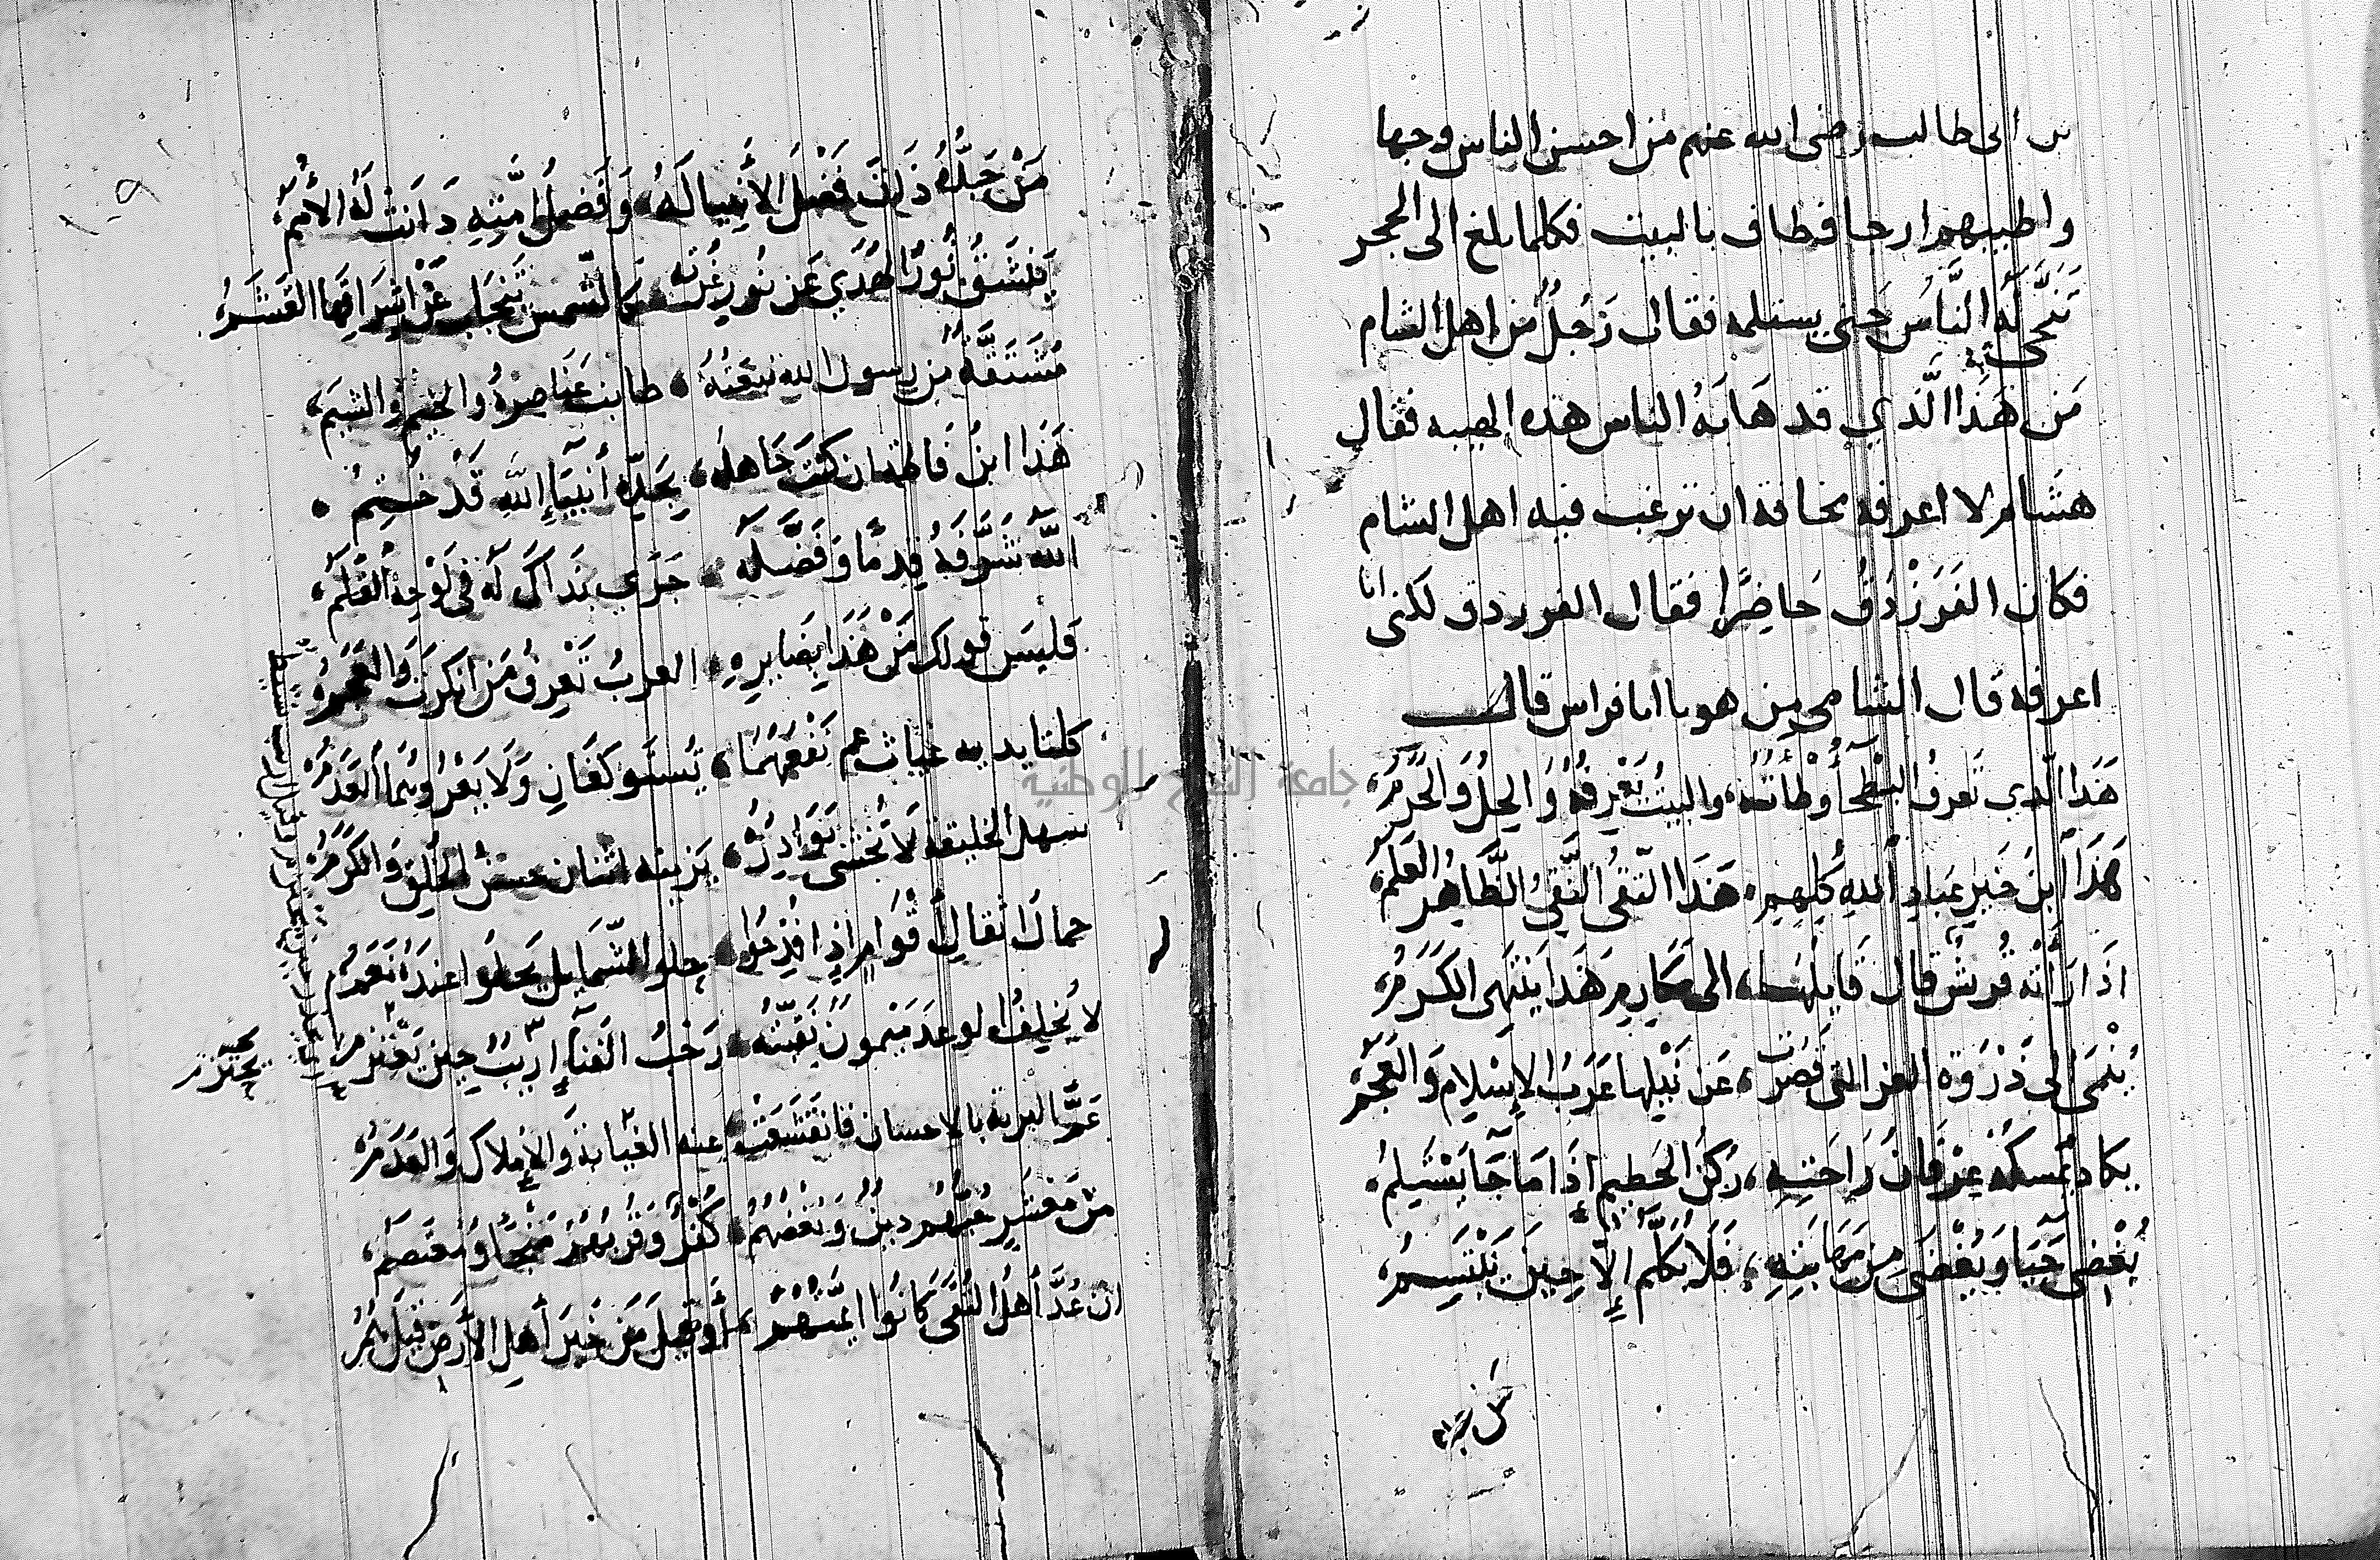 بن ابى طالب رضى الله عنهم من احسن الناس وجها
واطيبهم ارجا فطاف بالبيت فكلما بلغ الى الحجر
تَنَحَّى لَهُ النَّاسُ حَتى يستلمه فقال رَجُلٌ مِن اهل الشام
مَن هَذَا الَّذي قد هَابَهُ الناس هذه الهيبه فقال
هشام لا اعرفه مخافة ان ترغب فيه اهل الشام
فكان الفَرَزْدَقُ حَاضِرًا فقال الفرزدق لكنى انا
اعرفه قال الشامى من هو يا ابا فراس قال
هَذَا الّذي تَعرفُ البَطْحَآ وَطْأَتَهُ، والبيتُ يَعْرِفُهُ وَالحِلُّ وَالحَرَمُ،
هَذَا آبنُ خَيرِ عِبَادِ اللهِ كُلِّهِمِ، هَذَا التّقىُّ النَّقِىُّ الطَّاهِرُ العَلَمُ،
اذَا رَأَتْهُ قُرَيشٌ قَال قَايِلُهَا، الى مَكَارِمِ هَذَا يَنتَهِى الكَرَمُ،
يُنْمَى الى ذَرْوَة العز التى قَصُرَت، عَن نَيْلِها عَرَبُ الإِسْلامِ وَالعَجَمُ،
يكاد يُمسكُهُ عِرْفَانَ رَاحَتِهِ، رُكنُ الحَطيمِ إِذَا مَا جَآ يَسْتَلِمُ،
يُغْضِى حَيَا وَيُغْضَى مِن مَهَابَتِهِ، فَلَا يُكَلَّمُ إِلّا حِينَ يَبْتَسِمُ،
مَنْ جَدُّهُ دَانَ فَضْلُ الأَنبِيا لَهُ، وَفَضلُ أُمَّتِهِ دَانَت لَهُ الأُمَمُ،
يَنْشَقُّ نُورُ الهُدَي عَن نُورِ غُرّتِه، كالشّمس تَنجَاب عَنْ اشرَاقِهَا القَتَمُ
مُشْتَقَّةٌ من رسول الله نبعَتُهُ، طابت عَنَاصرهُ والخيم والشيم،
هَذَا ابنُ فَاطمة ان كنت جَاهله، بِجَدِّه أَنبِيَآءِ اللهِ قَدْ خُتِمُ .
اللهُ شَرَّفَهُ قِدمًا وَفَضَّلَهُ، جَرَي بذَاكَ لَه فى لَوْحِهِ القَلَمُ،
فَليسَ قولك مَنْ هَذَا بِضَايرِهِ، العربُ تَعْرِفُ مَن انكرتَ وَالعَجَمُ
كلتا يديه غياث عم نَفعُهُمَا، يُسْتَوكَفَانِ وَلَا يَعْرُوهُمَا العَدَمُ
سهل الخليقة لَا تُخْشَى بَوَادِرُه، يزينه اثنان حسن الخلق وَالكَرَمُ
حمال اثقال أَقْوَامٍ إذا فُدِحُوا، حلو الشمايل يحلوا عندَهُ نَعَمُ
لا يُخْلِفُ الوعدَ ميْمونٌ نَقيبتُهُ، رَحْبُ الفَنآءِ ارِيبٌ حِينَ يَعْتزم
يحترم
عَمَّ البرية بالاحسان فانقَشَعَتْ، عنه الغيابة وَالإملاك وَالعَدَمُ
من مَعْشَرٍ حُبُّهُم دينٌ وَبُغْضُهُمُ، كُفْرٌ وَقُربُهُمُ مَنجًا وَمُعتَصَمُ،
ان عُدَّ أَهلُ التُّقَى كَانُوا ايمَّتَهُمْ، أَو قيلَ مَن خَيرُ أَهلِ الأَرَضِ قيلَ هُمُ